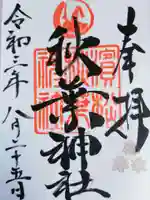 奉拝
秋葉神社
令和三年八月二十五日